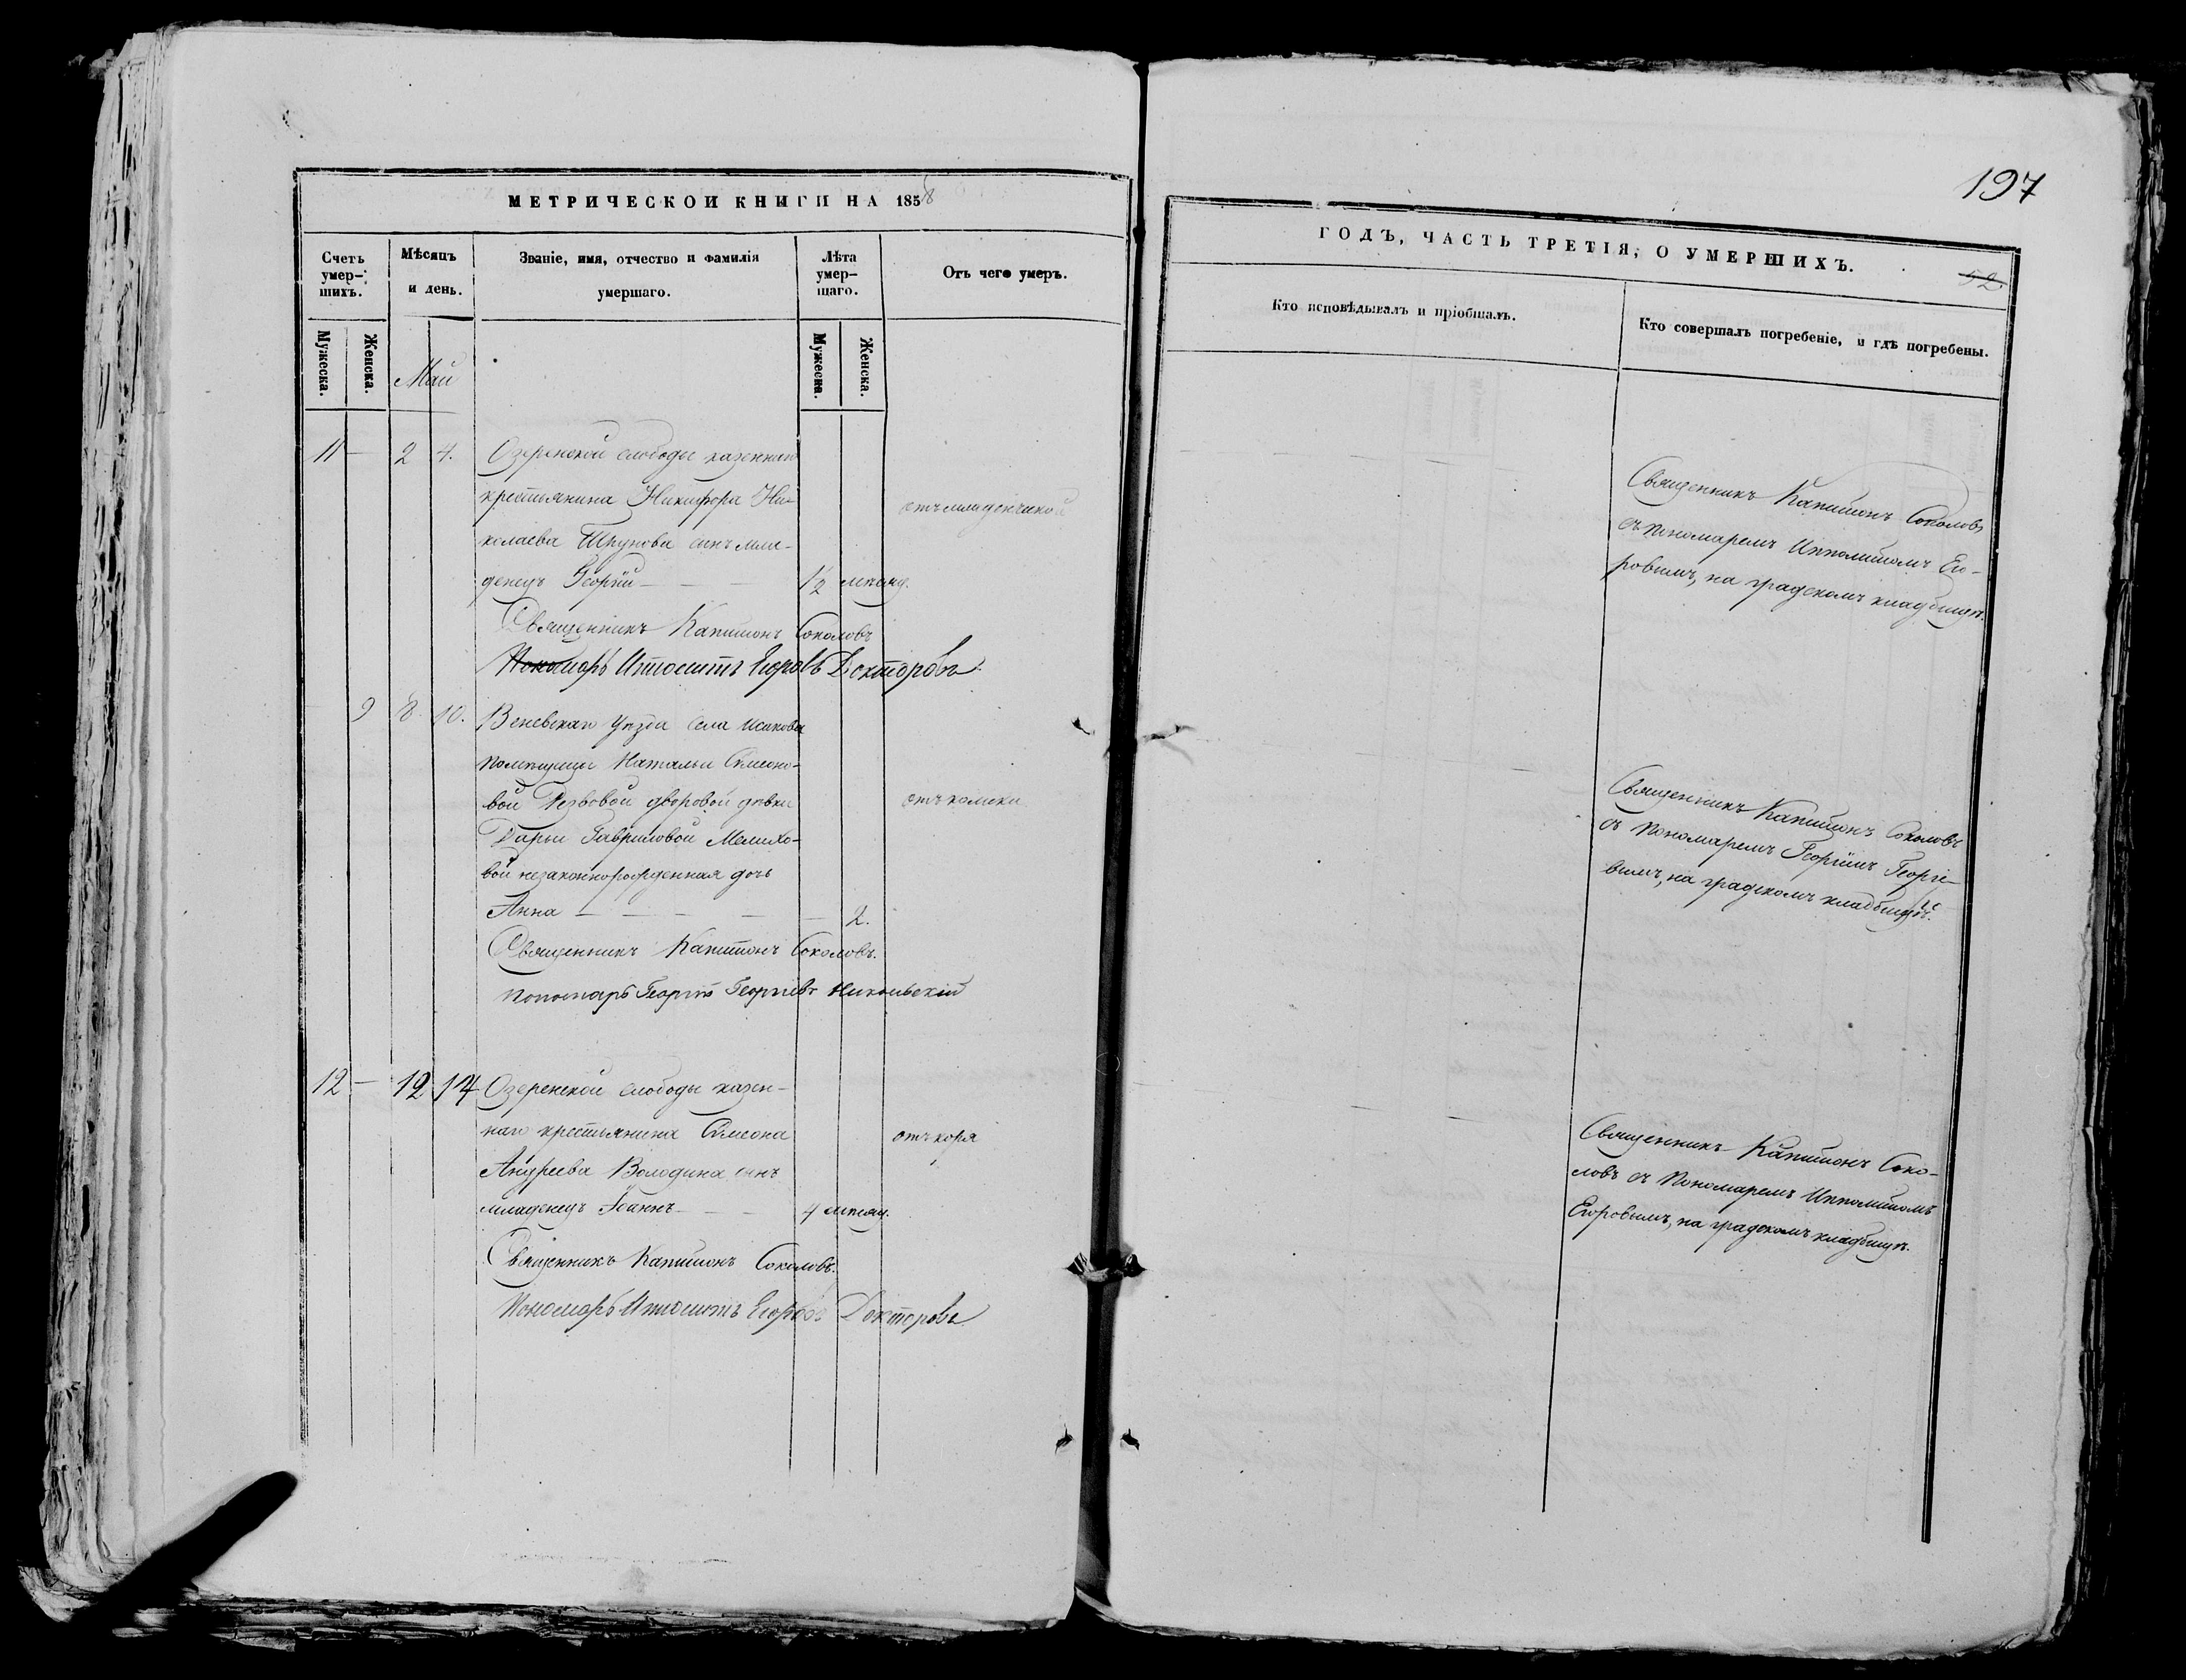 МЕТРИЧЕСКОЙ КНИГИ НА 1858
Счетъ умер-шихъ.
Мѣсяцъ и день.
Званіе, имя, отчество и фамилія умершаго.
Лѣта умер-шаго.
Отъ чего умеръ.
Мужеска.
Женска.
Май
Мужеска.
Женска.
11 — 2 4. Озеренской слободы казеннаго
крестьянина Никифора Ни-
колаева Трунова сынъ мла-
денецъ Георгій — — — 1/2 мѣсяц.
отъ младенческой
Священникъ Капитонъ Соколовъ
Пономарь Иполитъ Егоровъ Докторовъ
9 8 10. Веневскаго Уѣзда села Исакова
помѣщицы Натальи Симеоно-
вой Резвовой дворовой дѣвки
отъ колики
Дарьи Гавриловой Мелихо-
вой незаконнорожденная дочь
Анна — — — — — 2.
Священникъ Капитонъ Соколовъ.
Пономарь Георгій Георгіевъ Никольскій
12 — 12 14 Озеренской слободы казен-
наго крестьянина Симеона
отъ коря
Андреева Володина сынъ
младенецъ Іоаннъ — — — 4 мѣсяц.
Священникъ Капитонъ Соколовъ.
Пономарь Иполитъ Егоровъ Докторовъ
197
ГОДЪ, ЧАСТЬ ТРЕТІЯ, О УМЕРШИХЪ.
52
Кто исповѣдывалъ и пріобщалъ.
Кто совершалъ погребеніе, и гдѣ погребены.
Священникъ Капитонъ Соколовъ
съ пономаремъ Ипполитомъ Его-
ровымъ, на градскомъ кладбищѣ.
Священникъ Капитонъ Соколовъ
съ Пономаремъ Георгіемъ Георгіе-
вымъ, на градскомъ кладбищѣ.
Священникъ Капитонъ Соко-
ловъ съ Пономаремъ Ипполитомъ
Егоровымъ, на градскомъ кладбищѣ.